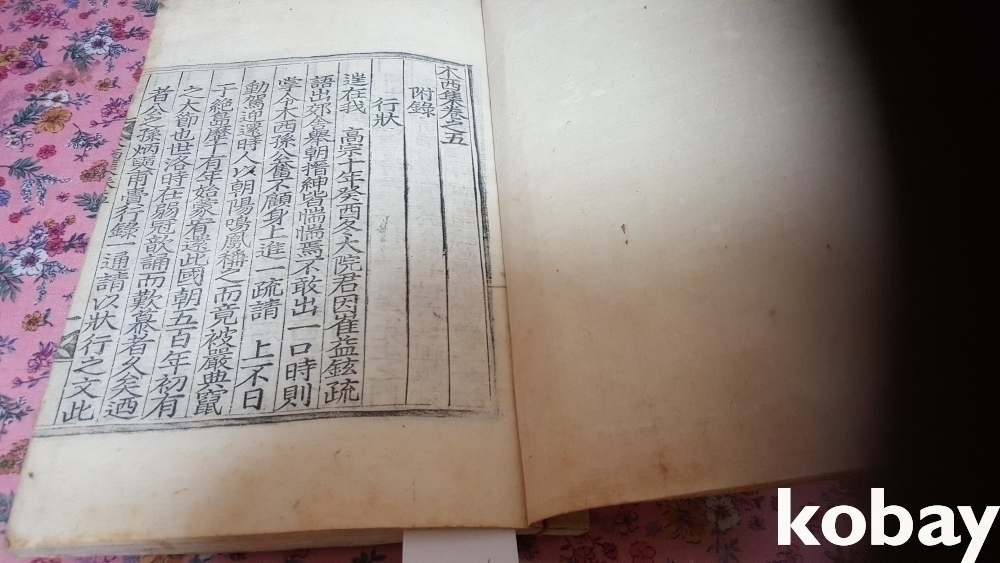 木西集卷之五
附錄
行狀
逞在我　高宗十年癸酉冬大院君因崔益鉉疏
語出郊外舉朝搢紳皆惴惴焉不敢出一口時則
掌令木西孫公奮不顧身上進一疏請　上不日
動駕迎還時人以朝陽鳴鳳稱之而竟被嚴典竄
于絶島歷十有年始蒙宥還此國朝五百年初有
之大節也世洛時在弱冠歆誦而歎慕者久矣迺
者公之孫炳 甫賷行錄一通請以狀行之文此
kobay